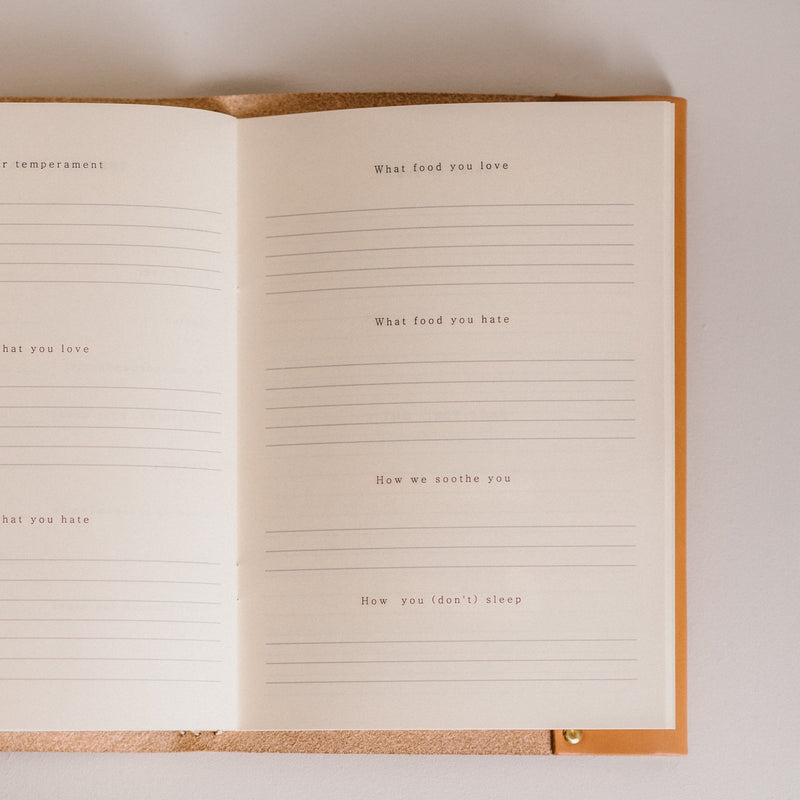 temperament
you love
you hate
What food you love
What food you hate
How we soothe you
How you (don't) sleep